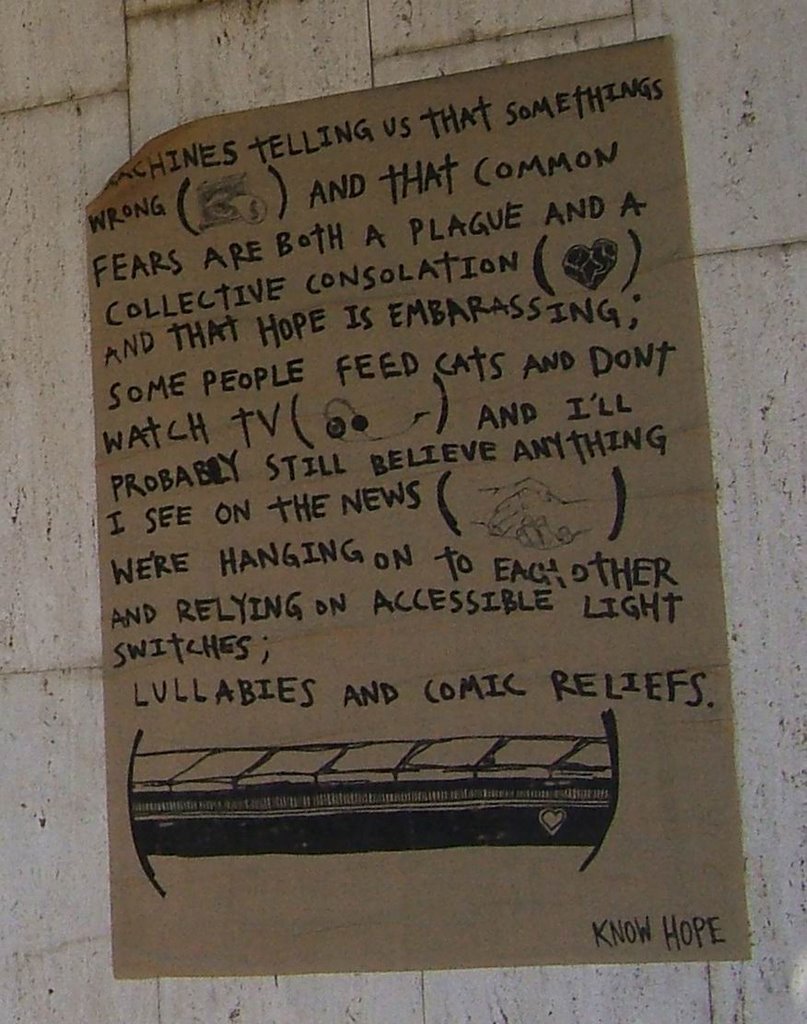 MACHINES TELLING US THAT SOMETHINGS
WRONG ( ) AND THAT COMMON
FEARS ARE BOTH A PLAGUE AND A
COLLECTIVE CONSOLATION ( )
AND THAT HOPE IS EMBARASSING;
SOME PEOPLE FEED CATS AND DONT
WATCH TV ( ) AND I'LL
PROBABLY STILL BELIEVE ANYTHING
I SEE ON THE NEWS ( )
WE'RE HANGING ON TO EACH OTHER
AND RELYING ON ACCESSIBLE LIGHT
SWITCHES;
LULLABIES AND COMIC RELIEFS.
KNOW HOPE